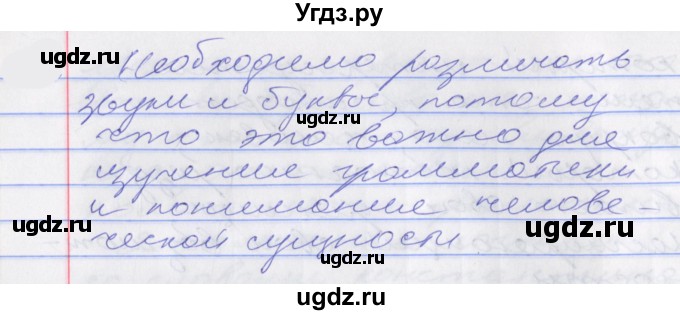 Угдз.ру
Необходимо различать
звуки и буквы, потому
что это важно для
изучение грамматики
и понимание челове-
ческой сущносты
ugdz.ru
ugdz.ru
ugdz.ru
ugdz.ru
ugdz.ru
ugdz.ru
ugdz.ru